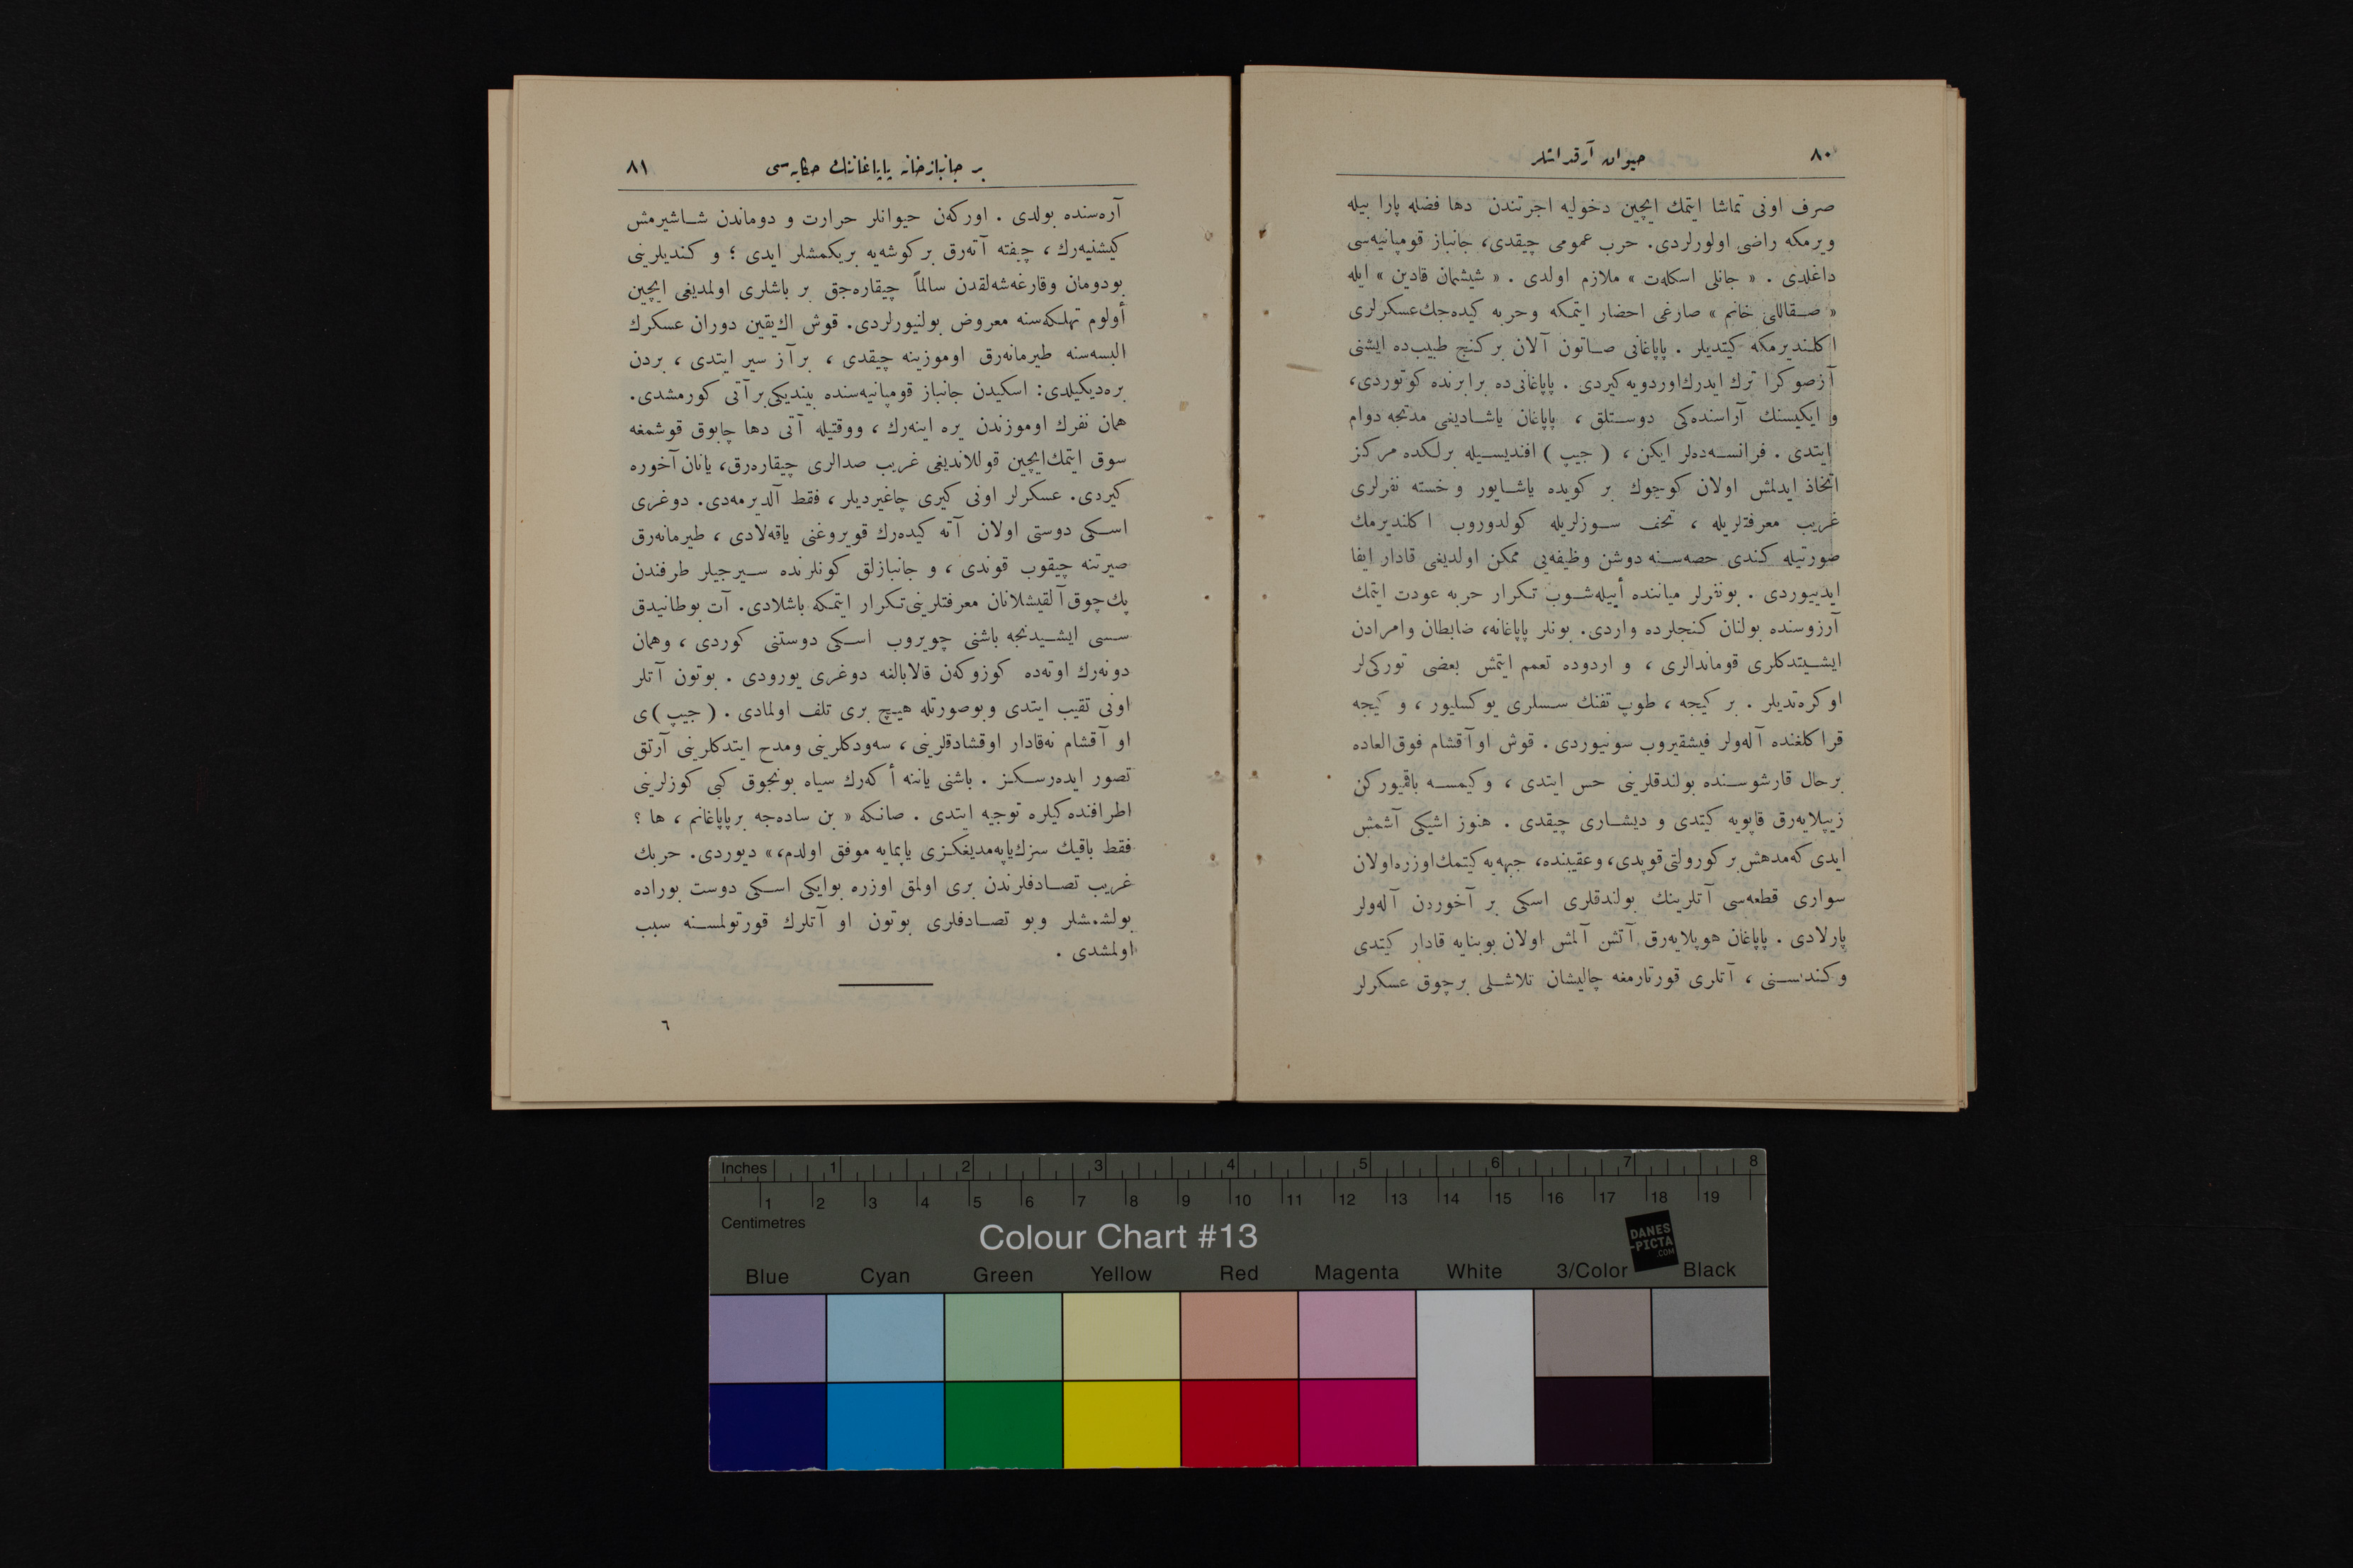 ٨٠
حیوان آرقداشلر
صرف اونی تماشا ایتمك ایچین دخولیه اجرتندن دها فضله پارا بیله
ویرمکه راضی اولورلردی. حرب عمومی چیقدی، جانباز قومپانیه‌سی
داغلدی . « جانلی اسکله‌ت » ملازم اولدی . « شیشمان قادین » ایله
« صقاللی خانم » صارغی احضار ایتمکه وحربه کیده‌جك عسکرلری
اکلندیرمکه کیتدیلر . پاپاغانی صاتون آلان برکنج طبیب‌ده ایشنی
آزصوکرا ترك ایدرك اوردویه کیردی . پاپاغانی‌ده برابرنده کوتوردی،
و ایکیسنك آراسنده‌کی دوستلق ، پاپاغان یاشادیغی مدتجه دوام
ایتدی . فرانسه‌ده‌لر ایکن ، ( جیپ ) افندیسیله برلکده مرکز
اتخاذ ایدلمش اولان کوچوك بر کویده یاشایور و خسته نفرلری
غریب معرفتلریله ، تحف سوزلریله کولدوروب اکلندیرمك
صورتیله کندی حصه‌سنه دوشن وظیفه‌یی ممکن اولدیغی قادار ایفا
ایدییوردی . بونفرلر میاننده أییله‌شوب تکرار حربه عودت ایتمك
آرزوسنده بولنان کنجلرده واردی. بونلر پاپاغانه، ضابطان وامرادن
ایشیتدکلری قوماندالری ، و اردوده تعمم ایتمش بعضی تورکی‌لر
اوکره‌تدیلر . بر کیجه ، طوپ تفنك سسلری یوکسلیور ، و کیجه
قراکلغنده آله‌ولر فیشقیروب سونیوردی . قوش اوآقشام فوق‌العاده
برحال قارشوسنده بولندقلرینی حس ایتدی ، وکیمسه باقمیورکن
زیپلایه‌رق قاپویه کیتدی و دیشاری چیقدی . هنوز اشیکی آشمش
ایدی که مدهش بر کورولتی قوپدی، وعقیبنده، جبهه‌یه کیتمك اوزره اولان
سواری قطعه‌سی آتلرینك بولندقلری اسکی بر آخوردن آله‌ولر
پارلادی . پاپاغان هوپلایه‌رق آتش آلمش اولان بوبنایه قادار کیتدی
وکندیسنی ، آتلری قورتارمغه چالیشان تلاشلی برچوق عسکرلر
بر جانبازخانه پاپاغاننك حکایه‌سی
٨١
آره‌سنده بولدی . اورکه‌ن حیوانلر حرارت و دوماندن شاشیرمش
کیشنیه‌رك ، چیفته آته‌رق بر کوشه‌یه بریکمشلر ایدی ؛ و کندیلرینی
بودومان وقارغه‌شه‌لقدن سالماً چیقاره‌جق بر باشلری اولمدیغی ایچین
أولوم تهلکه‌سنه معروض بولنیورلردی. قوش اك یقین دوران عسکرك
البسه‌سنه طیرمانه‌رق اوموزینه چیقدی ، برآز سیر ایتدی ، بردن
بره‌دیکیلدی: اسکیدن جانباز قومپانیه‌سنده بیندیکی برآتی کورمشدی.
همان نفرك اوموزندن یره اینه‌رك ، ووقتیله آتی دها چابوق قوشمغه
سوق ایتمك ایچین قوللاندیغی غریب صدالری چیقاره‌رق، یانان آخوره
کیردی. عسکرلر اونی کیری چاغیردیلر ، فقط آلدیرمه‌دی. دوغری
اسکی دوستی اولان آته کیده‌رك قویروغنی یاقه‌لادی ، طیرمانه‌رق
صیرتنه چیقوب قوندی ، و جانبازلق کونلرنده سیرجیلر طرفندن
پك چوق آلقیشلانان معرفتلرینی تکرار ایتمکه باشلادی. آت بوطانیدق
سسی ایشیدنجه باشنی چویروب اسکی دوستنی کوردی ، وهمان
دونه‌رك اوته‌ده کوزوکه‌ن قالابالغه دوغری یورودی . بوتون آتلر
اونی تقیب ایتدی وبوصورتله هیچ بری تلف اولمادی . ( جیپ )ی
او آقشام نه‌قادار اوقشادقلرینی ، سه‌ودکلرینی ومدح ایتدکلرینی آرتق
تصور ایده‌رسکز . باشنی یاننه أکه‌رك سیاه بونجوق کبی کوزلرینی
اطرافنده‌کیلره توجیه ایتدی . صانکه « بن ساده‌جه برپاپاغانم ، ها ؟
فقط باقیك سزك یاپه‌مدیغکزی یاپمایه موفق اولدم، » دیوردی. حربك
غریب تصادفلرندن بری اولمق اوزره بوایکی اسکی دوست بوراده
بولشمشلر وبو تصادفلری بوتون او آتلرك قورتولمسنه سبب
اولمشدی .
٦
Inches 1 2 3 4 5 6 7 8
1 2 3 4 5 6 7 8 9 10 11 12 13 14 15 16 17 18 19
Centimetres
Colour Chart #13
DANES
-PICTA
.COM
Blue Cyan Green Yellow Red Magenta White 3/Color Black